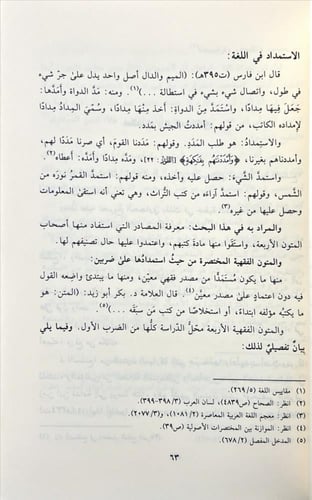 الاستمداد في اللغة:
قال ابن فارس (ت٣٩٥هـ): (الميم والدال أصل واحد يدل علىٰ جرّ شيء
في طول، واتصال شيء بشيء في استطالة ...)(١). ومنه: مَدَّ الدواة وأَمَدَّها:
جَعَل فِيهَا مِدادًا، واسْتَمَدَّ مِنَ الدواة: أَخذ مِنْهَا مِدادًا، وسُمّيَ المِدادُ مِدادًا
لإمداده الكاتب، من قولهم: أمددتُ الجيش بمَدد.
والاستمدادُ: هو طلب المَدَدِ. وقولهم: مَدَدنا القومَ، أي صرنا مَدَدًا لهم،
وأمددناهم بغيرنا، ﴿وَأَمْدَدْنَٰهُم بِفَٰكِهَةٍ﴾ [الطور: ٢٢]، ومَدَّه مِدادًا وأمَدَّه: أعطاه(٢).
واستمدَّ الشَّيءَ: حصل عليه وأخذه، ومنه قولهم: استمدَّ القمرُ نورَه من
الشَّمس، وقولهم: استمدَّ آراءَه من كتب التُّراث، وهي تعني أنه استقىٰ المعلومات
وحصل عليها من غيره(٣).
والمراد به في هذا البحث: معرفة المصادر التي استفاد منها أصحاب
المتون الأربعة، واستَقَوا منها مادةَ كتبهم، واعتمدوا عليها حال تصنيفهم لها.
والمتون الفقهية المختصرة من حيثُ استمدادُها علىٰ ضربين:
منها ما يكون مُستَمَدًّا من مصدر فقهي معيَّن، ومنها ما يبتدئ واضعيه القول
فيه دون اعتمادٍ علىٰ مصدر معيَّن(٤). قال العلامة د. بكر أبو زيد: (المتن: هو
ما يكتبُه مؤلفه ابتداءً، أو استخلاصًا من كتب مَن سبَقَه ...)(٥).
والمتون الفقهية الأربعة محلُّ الدِّراسة كلُّها من الضرب الأول. وفيما يلي
بيانٌ تفصيليٌّ لذلك:
(١) مقاييس اللغة (٢٦٩/٥).
(٢) انظر: الصحاح (ص٤٨٣٩)، لسان العرب (٣٩٨/٣-٣٩٩).
(٣) انظر: معجم اللغة العربية المعاصرة (١٠٨١/٢)، (٢٠٧٧/٣).
(٤) انظر: الموازنة بين المختصرات الأصولية (ص٣٩).
(٥) المدخل المفصل (٦٧٨/٢).
٦٣